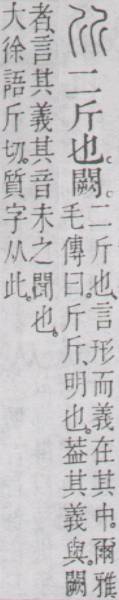 斦二斤也。闕。
二斤也、言形而義在其中。爾雅
毛傳曰。斤斤、明也。葢其義與。闕
者、言其義其音未之聞也。
大徐語斤切。質字从此。